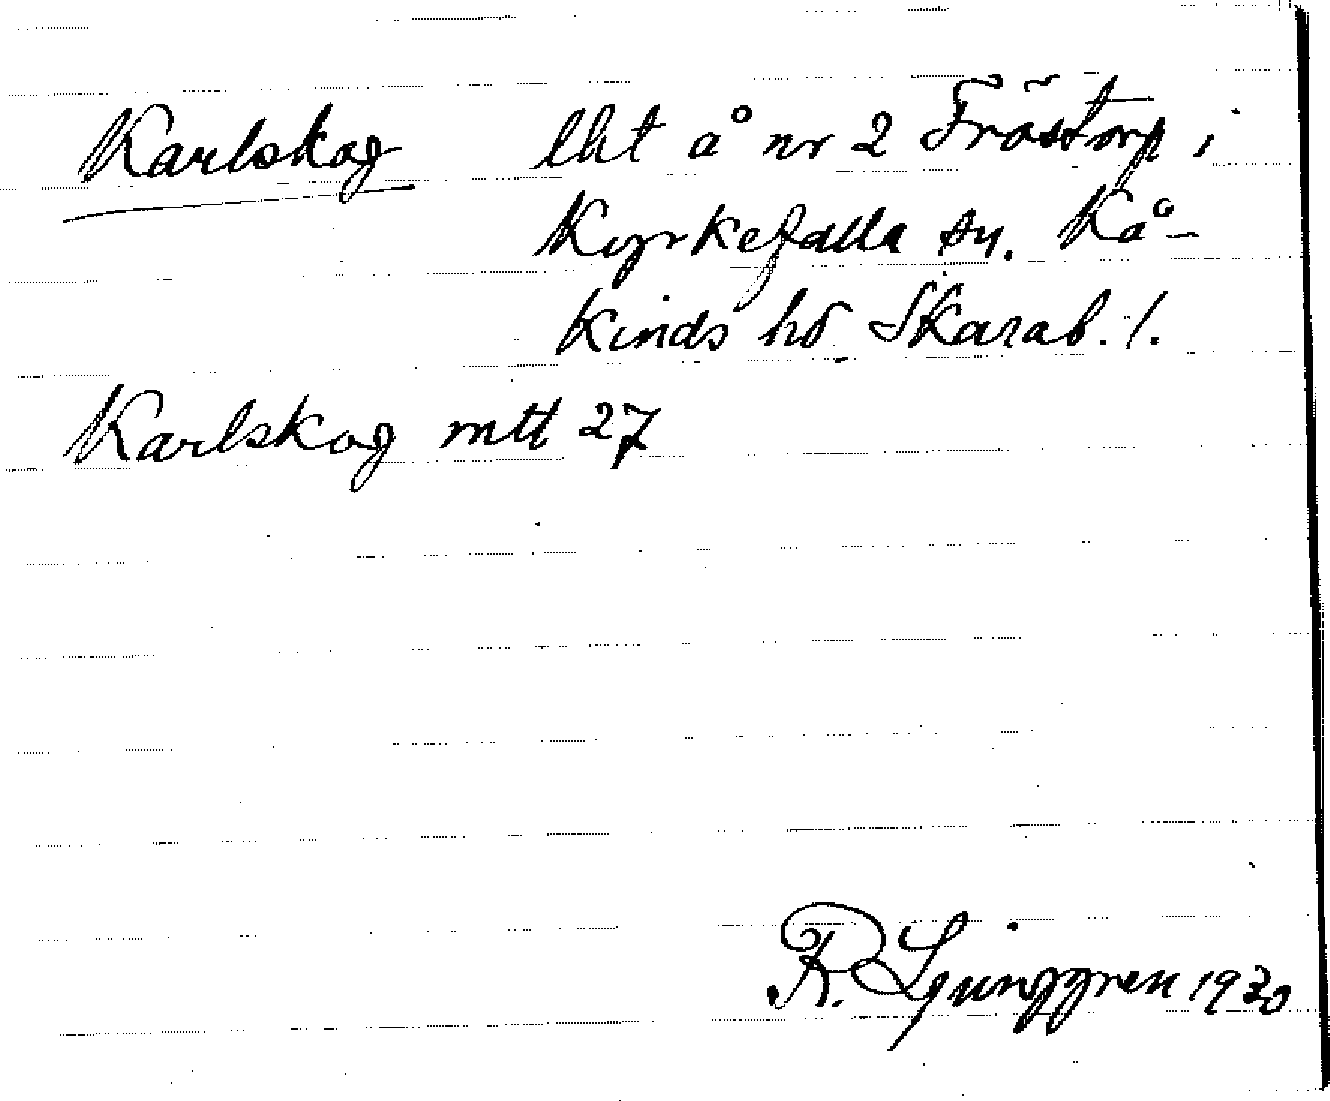 Karlskog lht å nr 2 Fröstorp i
Kyrkefalla sn. Kå-
kinds hd Skarab. l.
Karlskog mtl 27
R. Ljunggren 1930